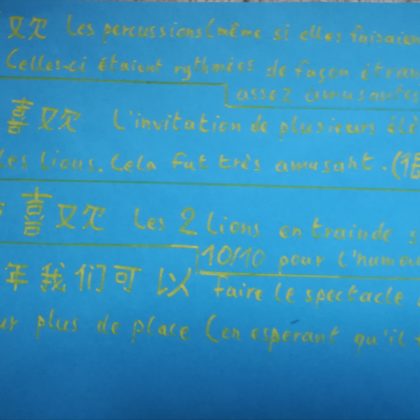 欢 Les percussions (même si elles faisaien
Celles-ci étaient rythmées de façon étran
assez amusantes
喜欢 L'invitation de plusieurs élè
les lions. Cela fut très amusant. (很
喜欢 Les 2 lions en train de :
10/10 pour l'humou
年我们可以 faire le spectacle
ur plus de place (en espérant qu'il